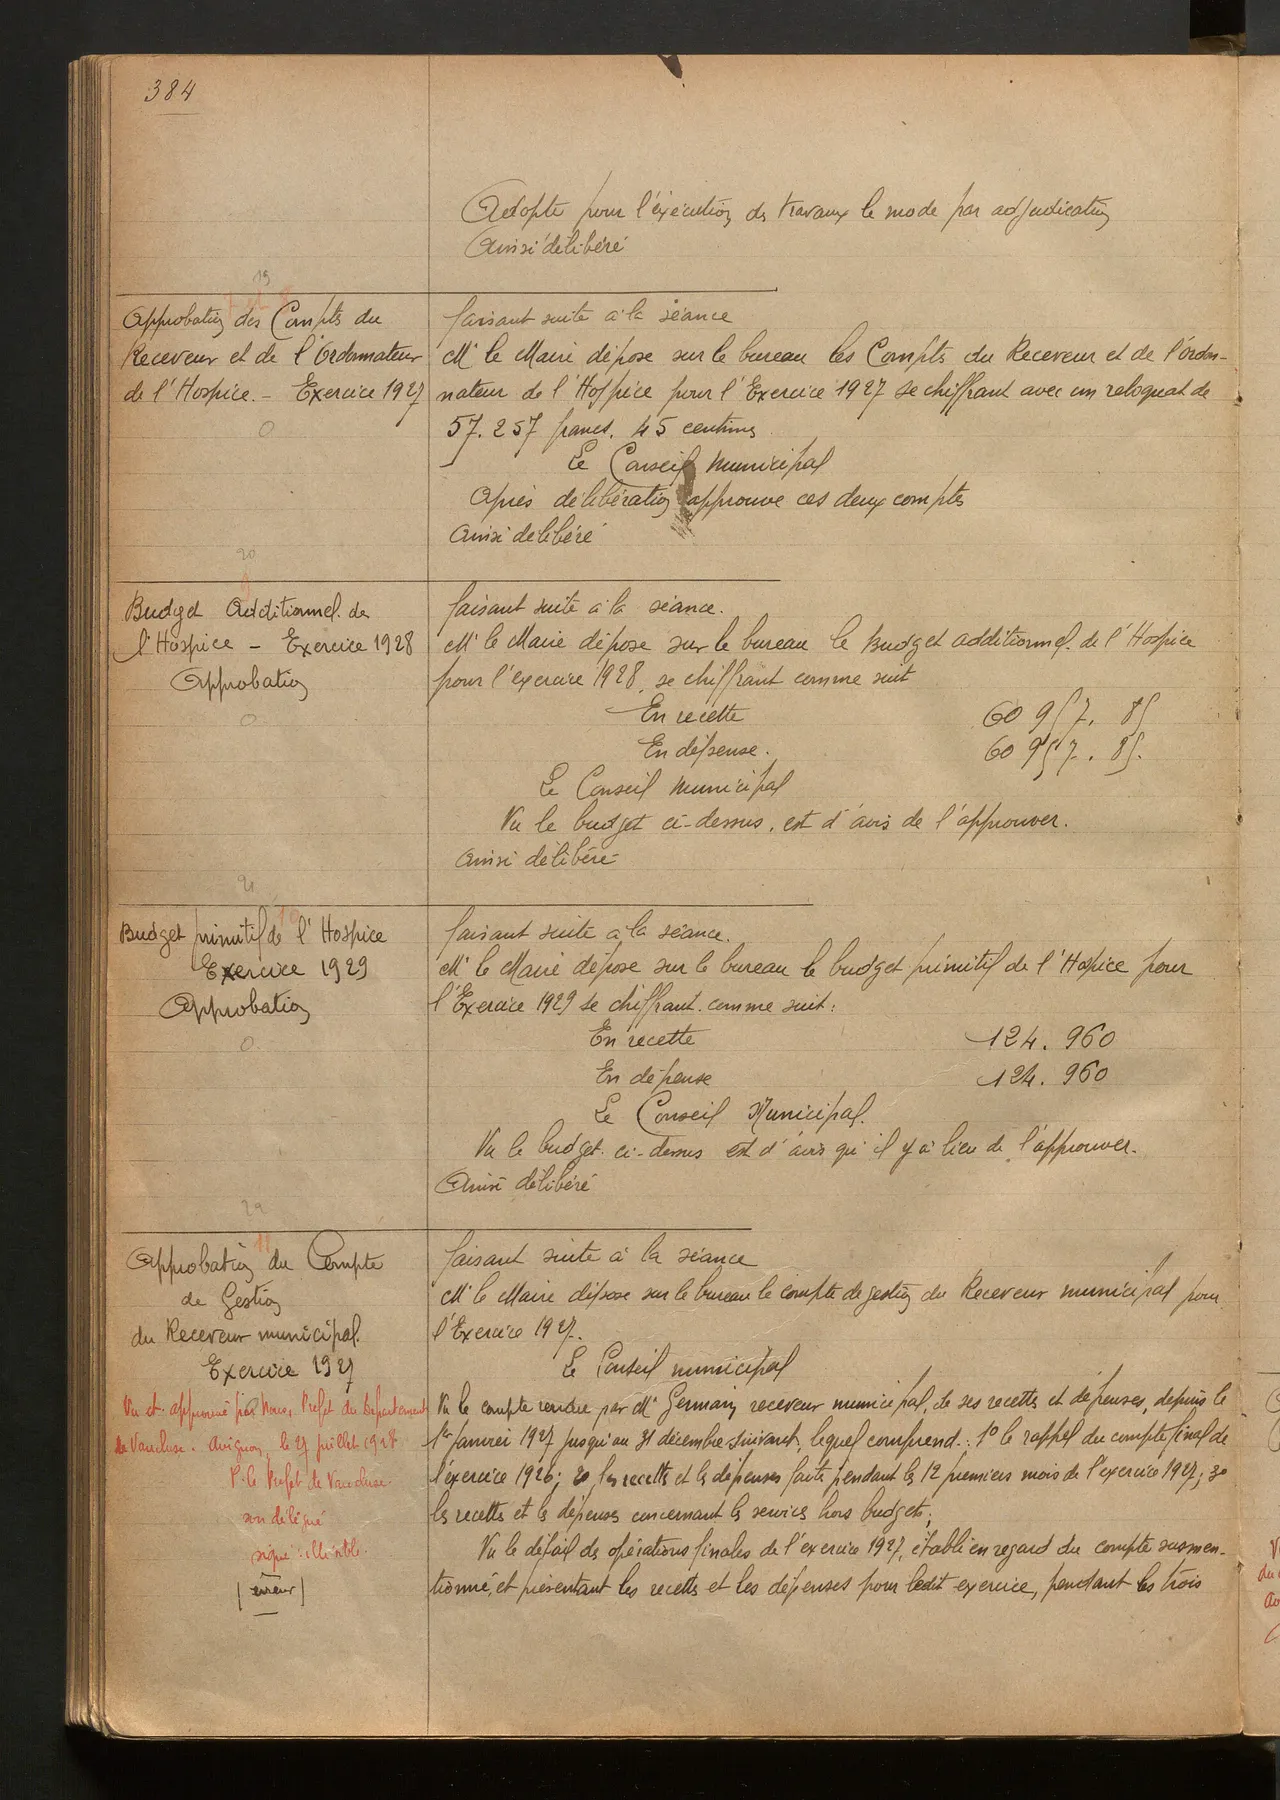 384
Adopte pour l'exécution des travaux le mode par adjudication
Ainsi délibéré
19
Approbation des Compts du
Receveur et de l'Ordonnateur
de l'Hospice. - Exercice 1927
faisant suite à la séance
Mr le Maire dépose sur le bureau les Compts du Receveur et de l'ordon-
nateur de l'Hospice pour l'Exercice 1927 se chiffrant avec un reloquat de
57.257 francs. 45 centimes
Le Conseil municipal
Après délibération approuve ces deux comptes
Ainsi délibéré
20
Budget Additionnel de
l'Hospice - Exercice 1928
Approbation
faisant suite à la séance.
Mr le Maire dépose sur le bureau le Budget additionnel de l'Hospice
pour l'exercice 1928, se chiffrant comme suit
En recette 60 957. 85
En dépense. 60 957. 85.
Le Conseil municipal
Vu le budget ci-dessus, est d'avis de l'approuver.
Ainsi délibéré
21
Budget primitif de l'Hospice
Exercice 1929
Approbation
faisant suite à la séance.
Mr le Maire dépose sur le bureau le budget primitif de l'Hospice pour
l'Exercice 1929 se chiffrant comme suit :
En recette 124. 960
En dépense 124. 960
Le Conseil Municipal.
Vu le budget ci-dessus est d'avis qu'il y a lieu de l'approuver.
Ainsi délibéré
22
11
Approbation du Compte
de Gestion
du Receveur municipal.
Exercice 1927
Vu et approuvé par Nous, Préfet du Département
de Vaucluse. Avignon, le 27 juillet 1928
P. le Préfet de Vaucluse
son délégué
signé : illisible.
(erreur)
faisant suite à la séance
Mr le Maire dépose sur le bureau le compte de gestion du Receveur municipal pour
l'Exercice 1927.
Le Conseil municipal
Vu le compte rendu par Mr Germain receveur municipal, de ses recettes et dépenses, depuis le
1er Janvier 1927 jusqu'au 31 décembre suivant, lequel comprend : 1º le rappel du compte final de
l'exercice 1926; 2º les recettes et les dépenses faites pendant les 12 premiers mois de l'exercice 1927; 3º
les recettes et les dépenses concernant les services hors budgets;
Vu le détail des opérations finales de l'exercice 1927, établi en regard du compte susmen-
tionné, et présentant les recettes et les dépenses pour ledit exercice, pendant les trois